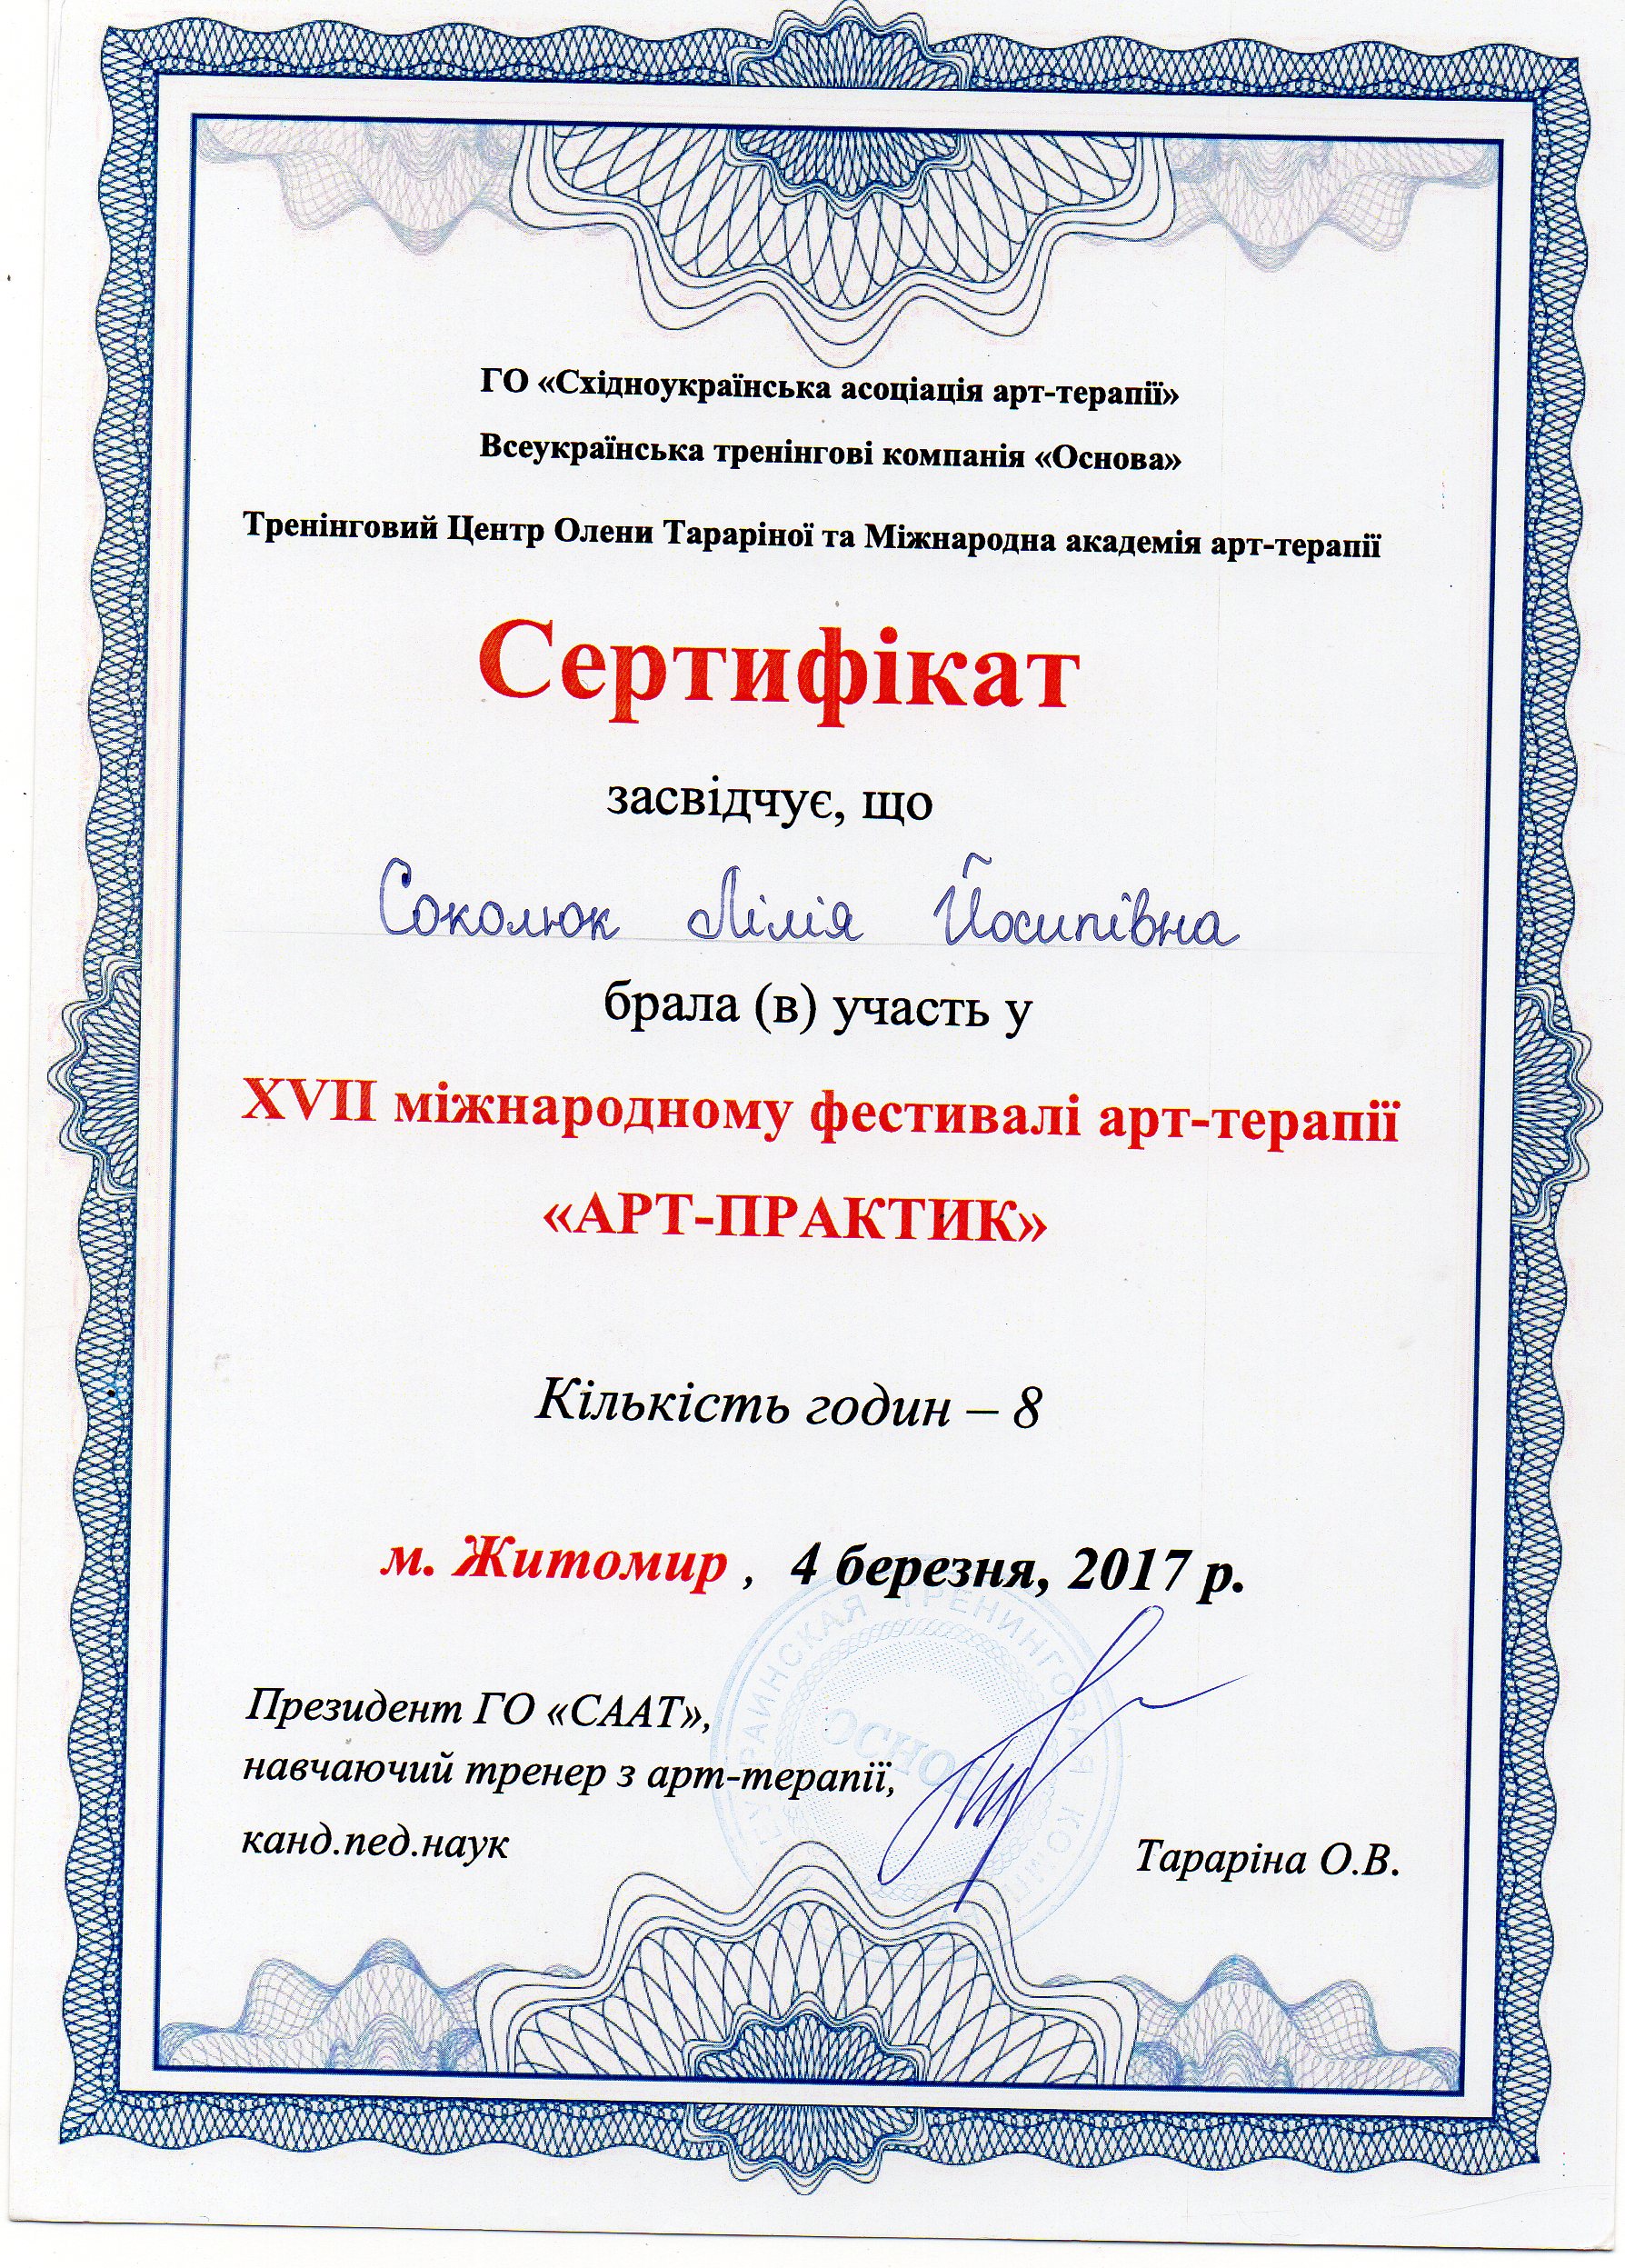 ГО «Східноукраїнська асоціація арт-терапії»
Всеукраїнська тренінгові компанія «Основа»
Тренінговий Центр Олени Тараріної та Міжнародна академія арт-терапії
Сертифікат
засвідчує, що
Соколюк Лілія Йосипівна
брала (в) участь у
XVII міжнародному фестивалі арт-терапії
«АРТ-ПРАКТИК»
Кількість годин – 8
м. Житомир , 4 березня, 2017 р.
Президент ГО «СААТ»,
навчаючий тренер з арт-терапії,
канд.пед.наук
Тараріна О.В.